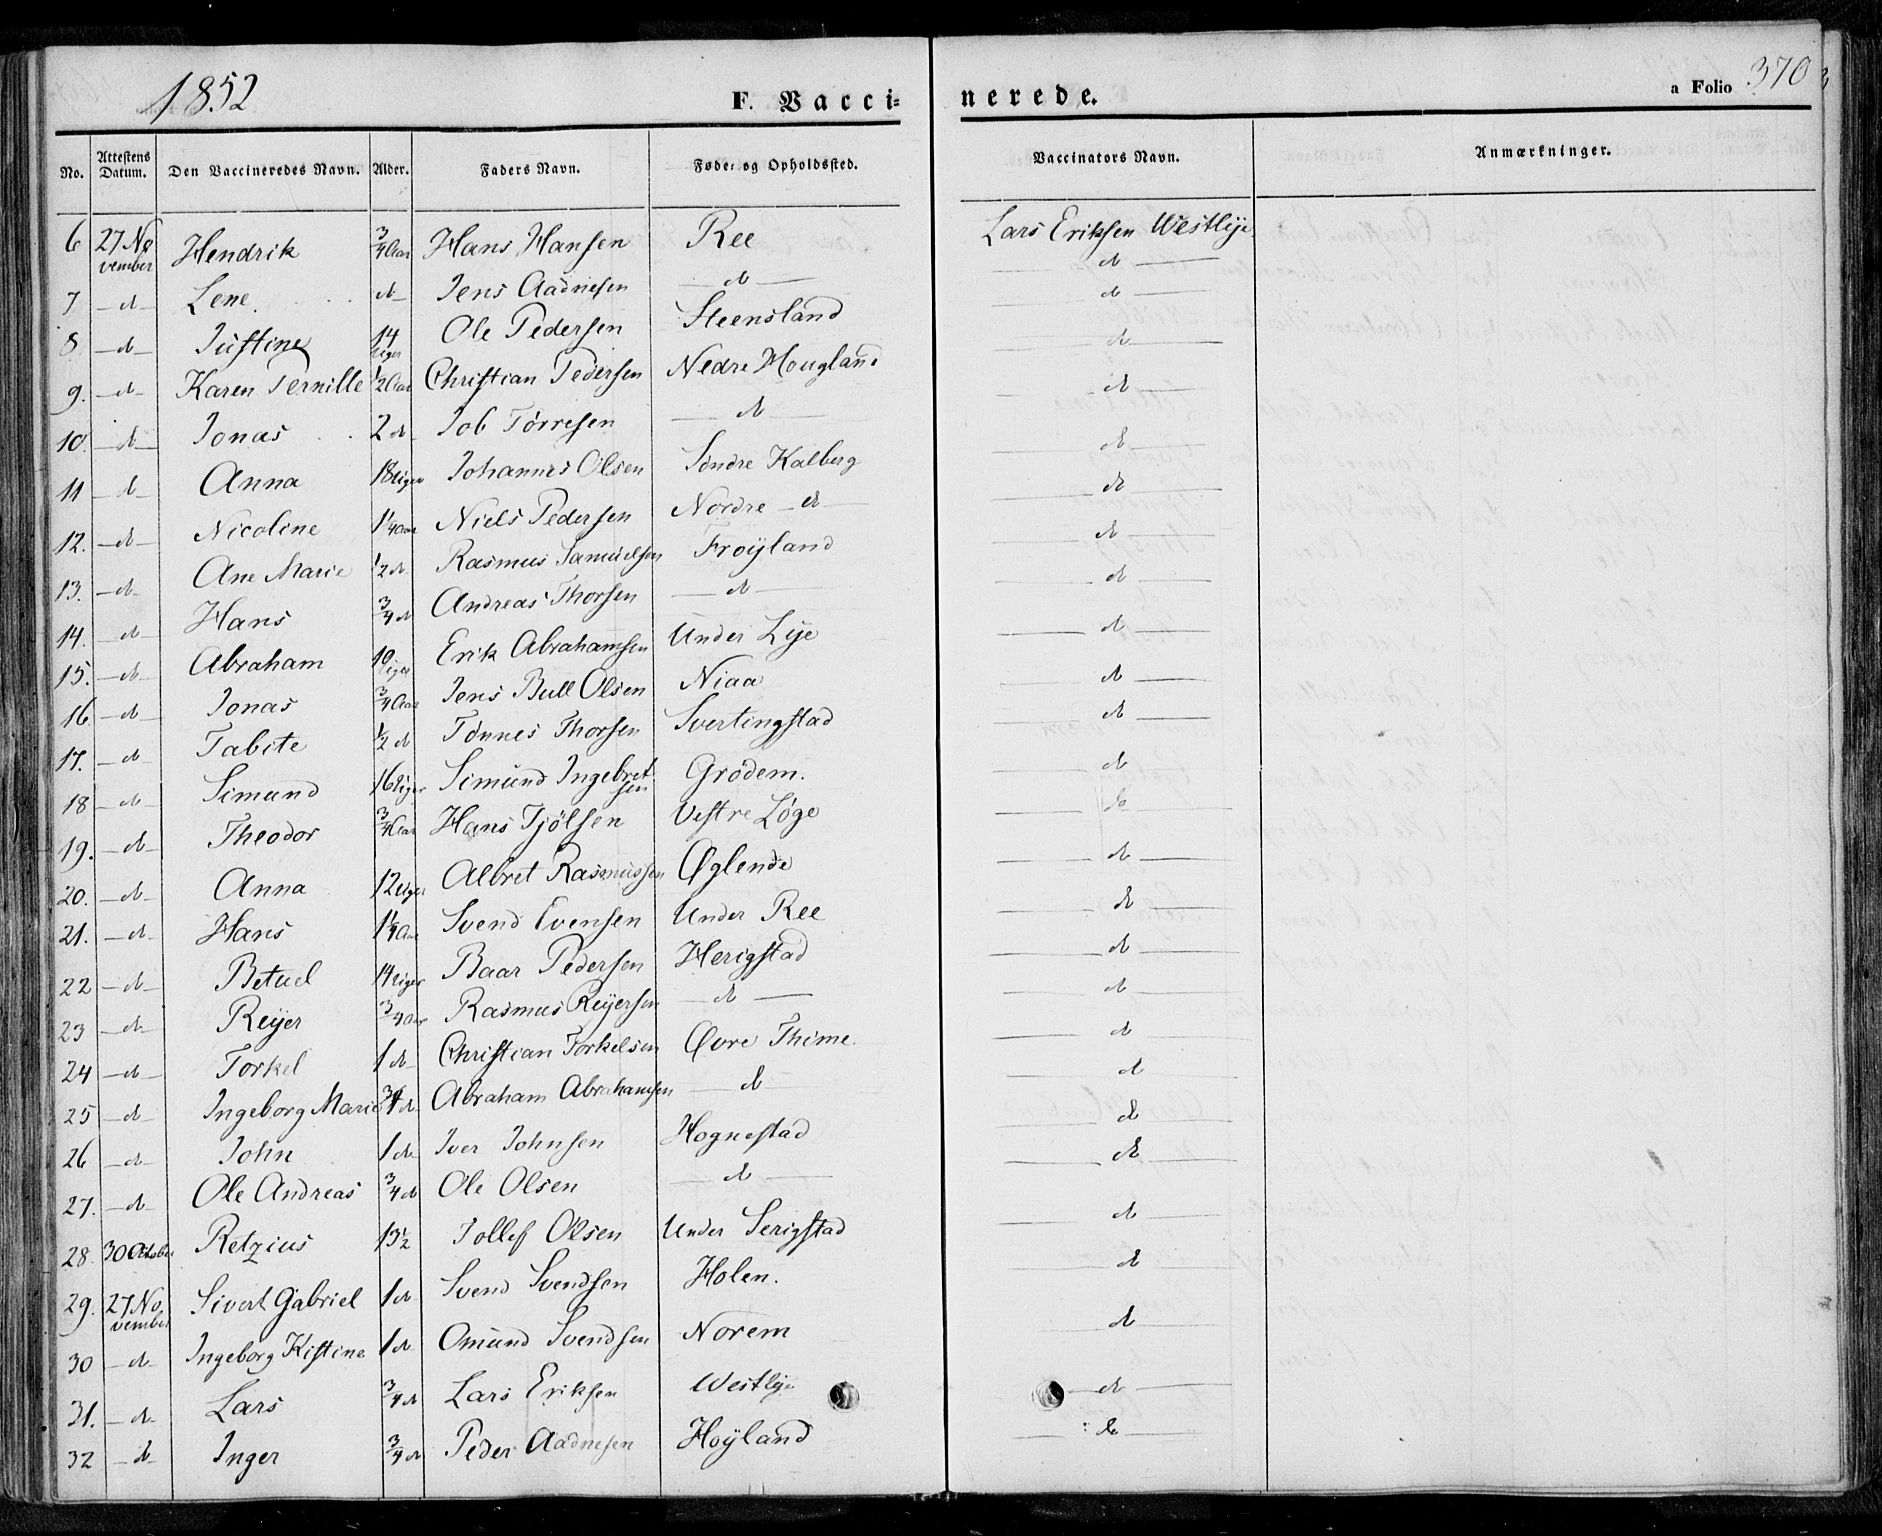 1852
F. Vacci=
nerede.
a Folio 370
No. Attestens Datum. Den Vaccineredes Navn. Alder. Faders Navn. Føde= og Opholdssted. Vaccinators Navn. Anmærkninger.
6 27 No vember Hendrik 3/4 Aar Hans Hansen Ree Lars Eriksen Westlye
7 — d — Lene d Jens Aadnesen — d — — d —
8 — d — Justine 14 Uger Ole Pedersen Steensland — d —
9. — d — Karen Pernille 1/2 Aar Christian Pedersen Nedre Hougland — d —
10. — d — Jonas 2 d Job Tørresen — d — — d —
11 — d — Anna 18 Uger Johannes Olsen Søndre Kalberg — d —
12. — d — Nicoline 1 1/4 Aar Niels Pedersen Nordre — d — — d —
13. — d — Ane Marie 1/2 d Rasmus Samuelsen Frøyland — d —
14. — d — Hans 3/4 d Andreas Thorsen — d — — d —
15. — d — Abraham 10 Uger Erik Abrahamsen Under Lye — d —
16. — d — Jonas 3/4 Aar Jens Bull Olsen Niaa — d —
17. — d — Tabite 1/2 d Tønnes Thorsen Svertingstad — d —
18 — d — Simund 16 Uger Simund Ingebretsen Grødem. — d —
19. — d — Theodor 3/4 Aar Hans Tjölsen Vestre Løge — d —
20. — d — Anna 12 Uger Albret Rasmussen Øglende — d —
21. — d — Hans 1 1/4 Aar Svend Evensen Under Ree — d —
22 — d — Betuel 14 Uger Baar Pedersen Herigstad — d —
23 — d — Reijer 3/4 Aar Rasmus Reijersen — d — — d —
24 — d — Torkel 1 d Christian Torkelsen Øvre Thime — d —
25 — d — Ingeborg Marie 3/4 d Abraham Abrahamsen — d — — d —
26 — d — John 1 d Iver Johnsen Hognestad — d —
27. — d — Ole Andreas 3/4 d Ole Olsen — d — — d —
28. 30 October Retzius 13 1/2 Tollef Olsen Under Serigstad — d —
29. 27 No vember Sivert Gabriel 1 d Svend Svendsen Holen. — d —
30 — d — Ingeborg Kistine 1 d Omund Svendsen Norem — d —
31. — d — Lars 3/4 d Lars Eriksen Westlye — d —
32 — d — Inger 3/4 d Peder Aadnesen Høyland — d —